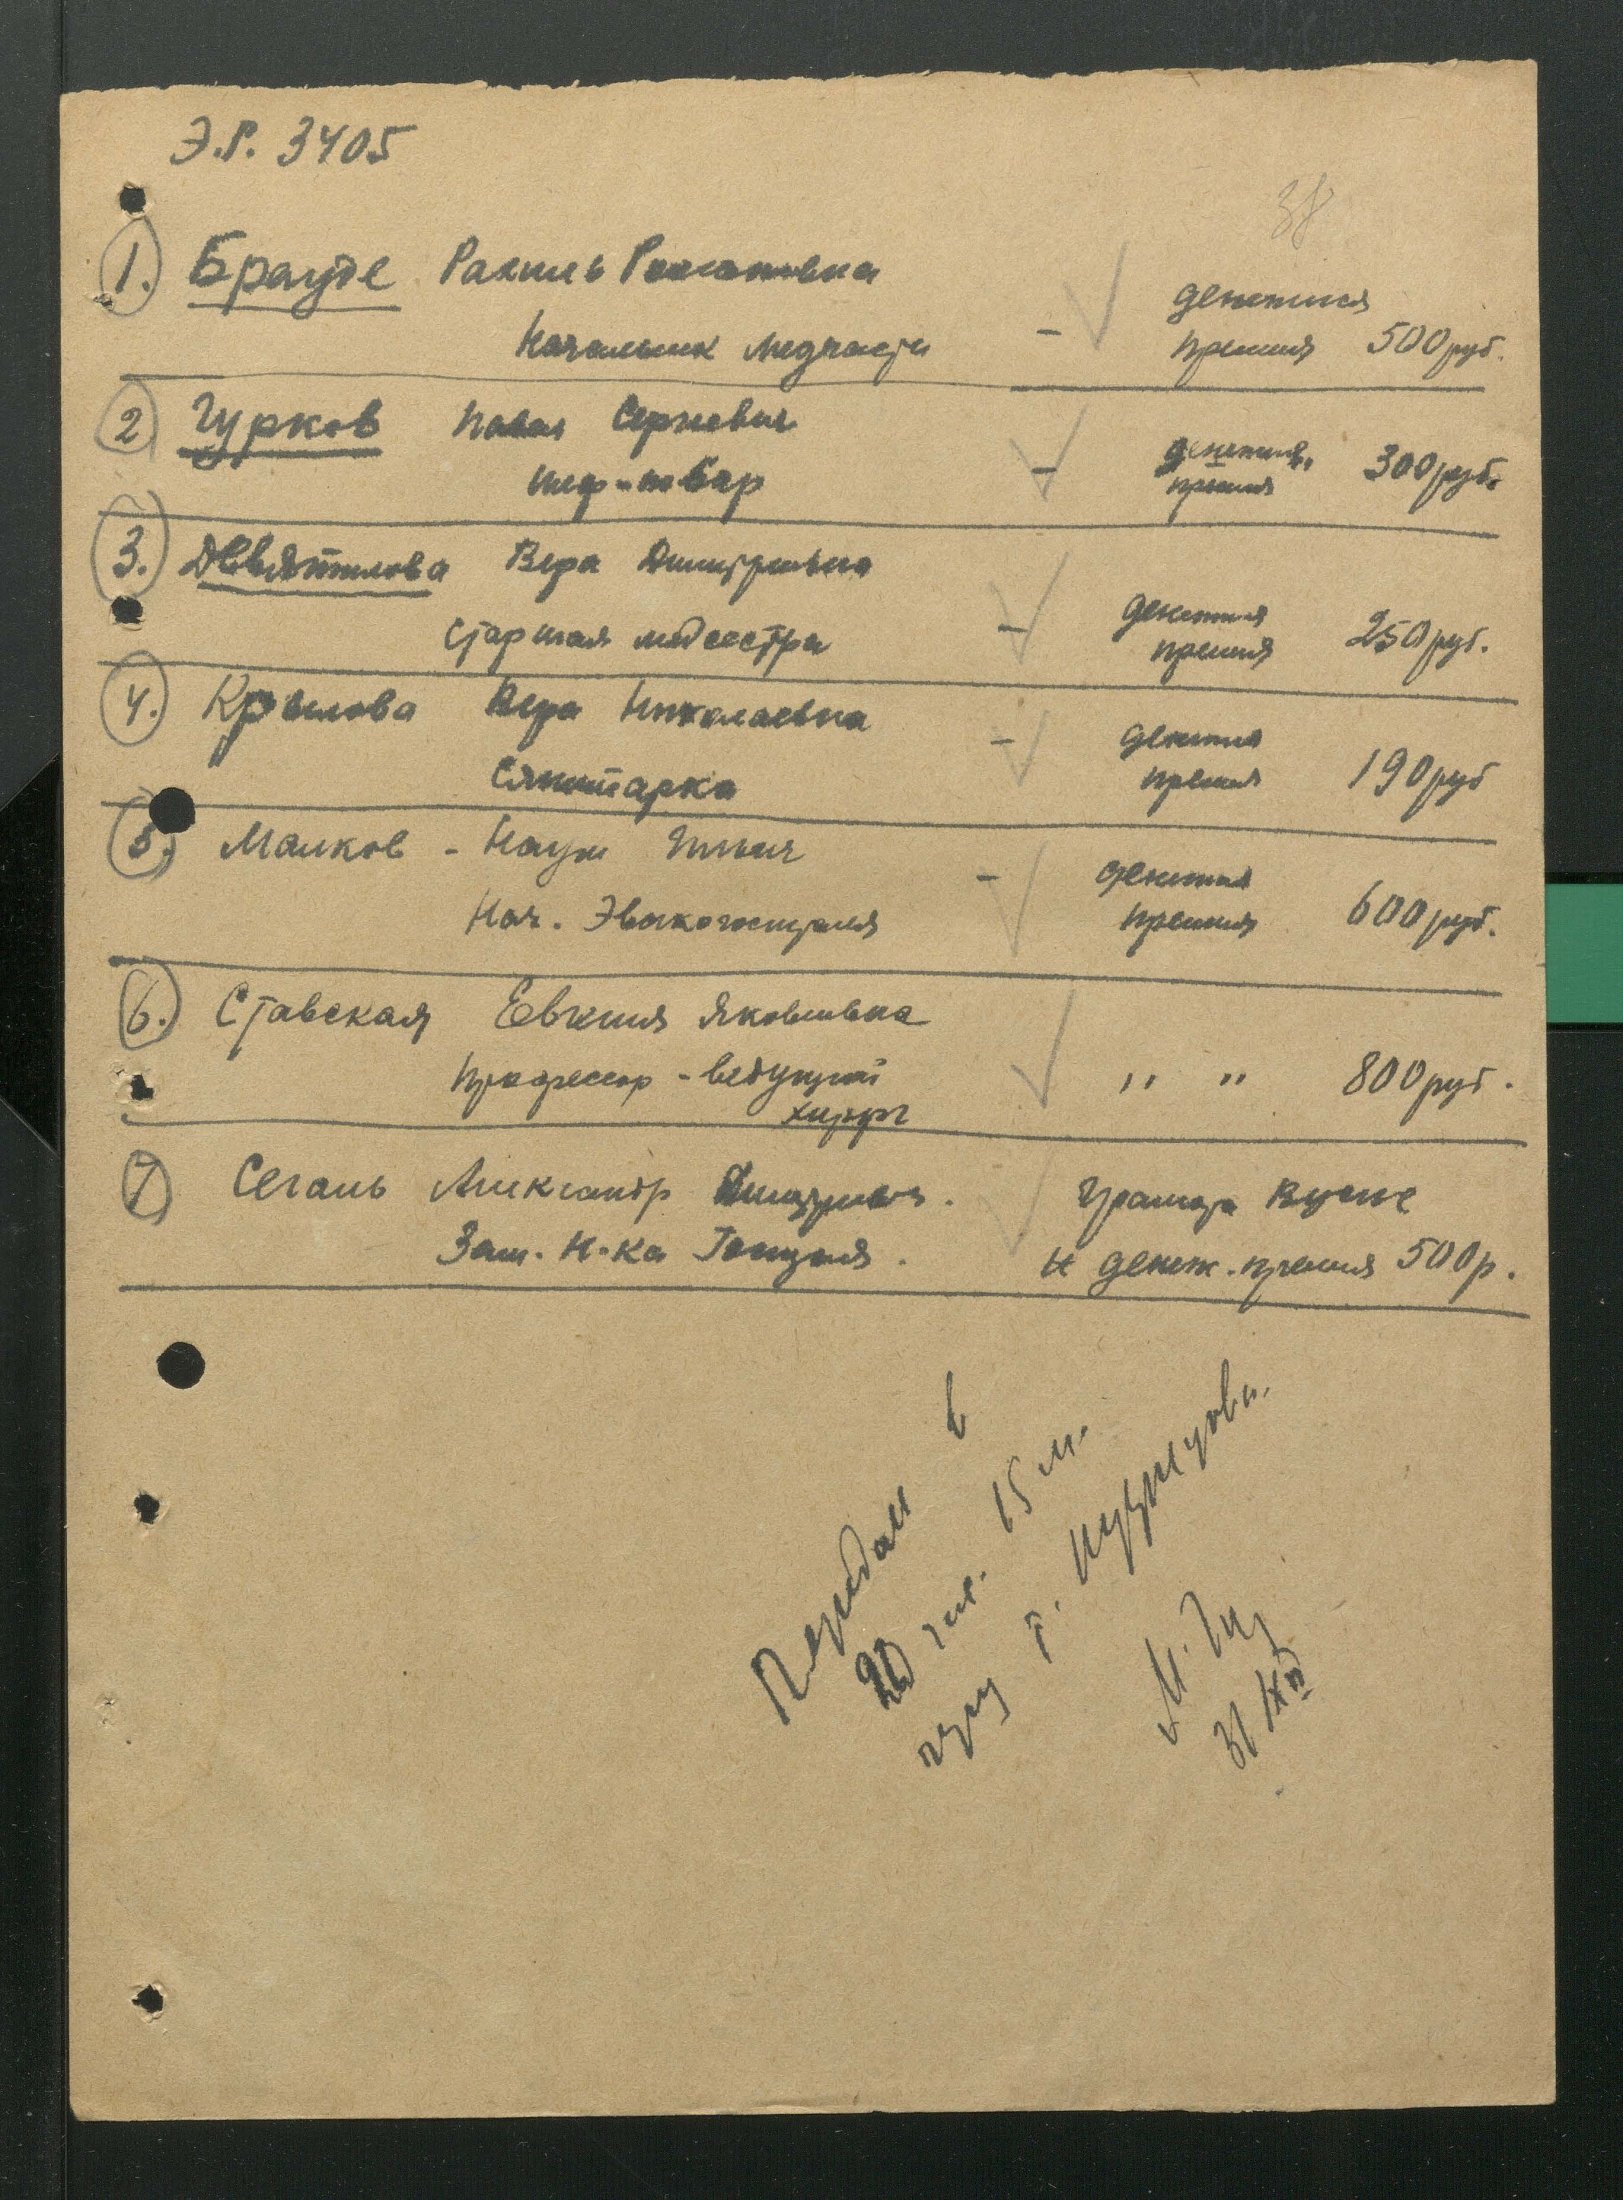 Э.Г. 3405
38
1. Брауде Рахиль Романовна
Начальник медчасти - денежная премия 500 руб.
2 Гурков Павел Сергеевич
шеф-повар - денежн. премия 300 руб.
3. Девятилова Вера Дмитриевна
Старшая медсестра - денежная премия 250 руб.
4. Крылова Вера Николаевна
Санитарка - денежная премия 190 руб
5. Малков - Наум Ильич
Нач. Эвакогоспиталя - денежная премия 600 руб.
6. Ставская Евгения Яковлевна
Профессор - ведущий хирург " " 800 руб.
7 Сегань Александр Дмитриевич. Грамота
Зам. н-ка Госпиталя. и денеж. премия 500 р.
Передал в
20 час. 15 м.
т.
31/XII